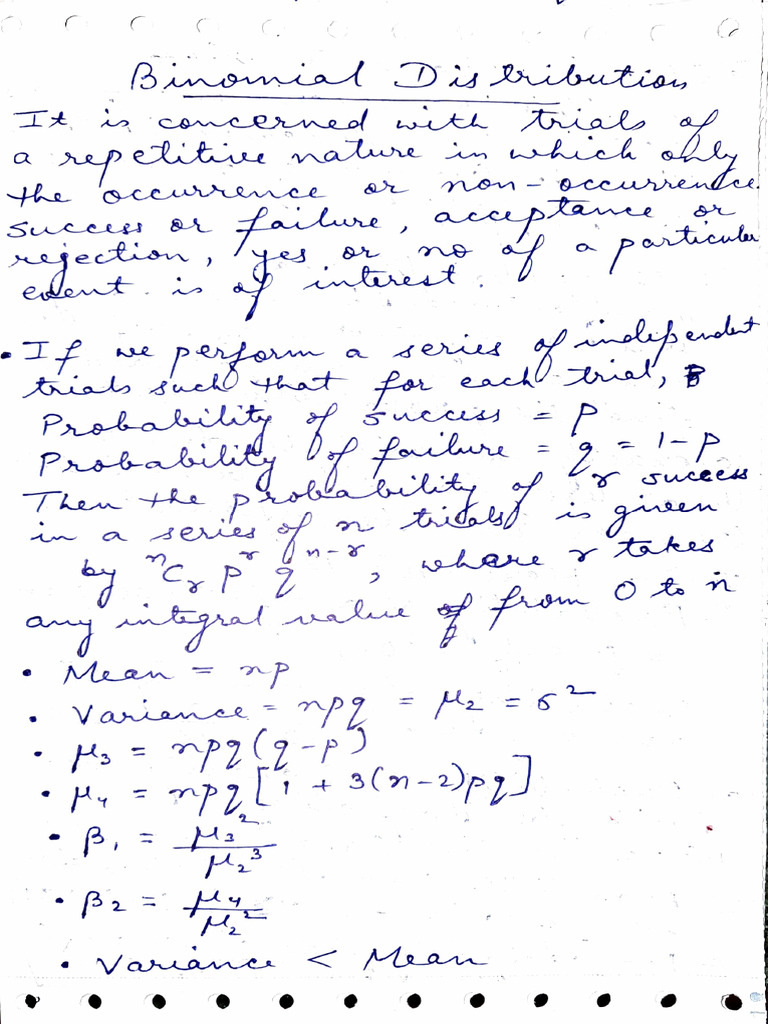 Binomial Distribution
It is concerned with trials of
a repetitive nature in which only
the occurrence or non-occurrence
success or failure, acceptance or
rejection, yes or no of a particular
event is of interest.
• If we perform a series of independent
trials such that for each trial,
Probability of success = p
Probability of failure = q = 1-p
Then the probability of r success
in a series of n trials is given
by ⁿCᵣ pʳ qⁿ⁻ʳ, where r takes
any integral value from 0 to n
• Mean = np
• Variance = npq = μ₂ = σ²
• μ₃ = npq(q-p)
• μ₄ = npq[1 + 3(n-2)pq]
• β₁ = μ₃²/μ₂³
• β₂ = μ₄/μ₂²
• Variance < Mean